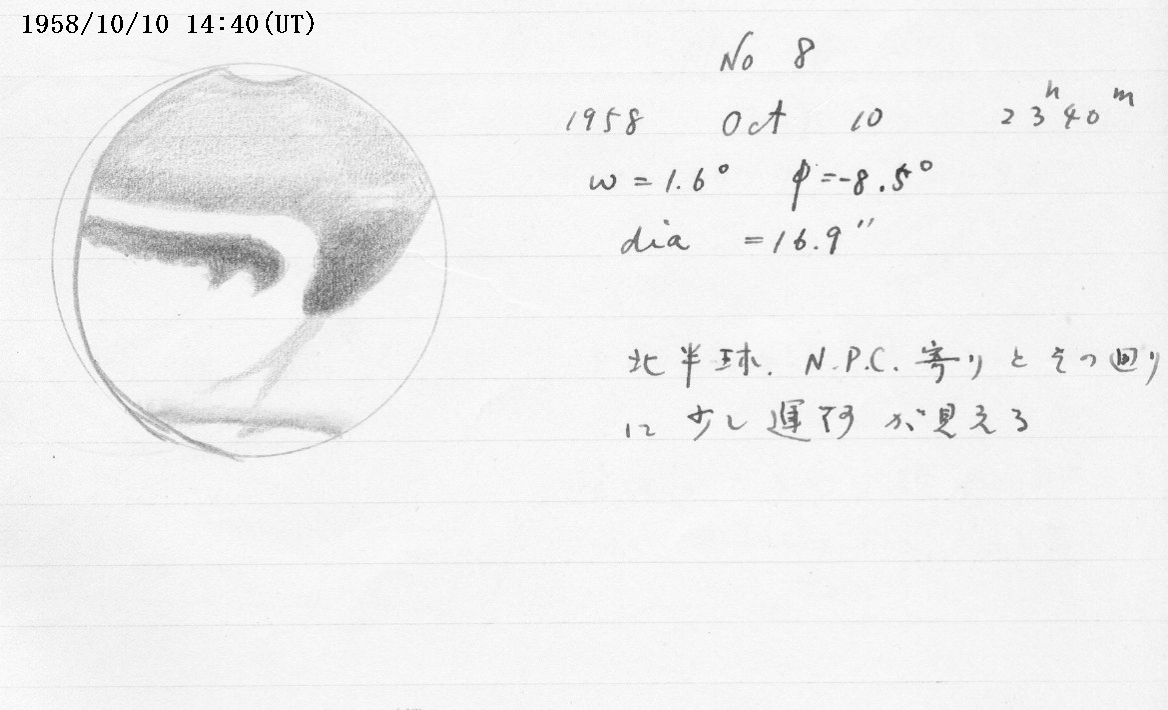 1958/10/10 14:40(UT)
No 8
1958 Oct 10 23h 40m
ω = 1.6° φ = -8.5°
dia = 16.9"
北半球. N.P.C. 寄りとその回り
に少し運河が見える